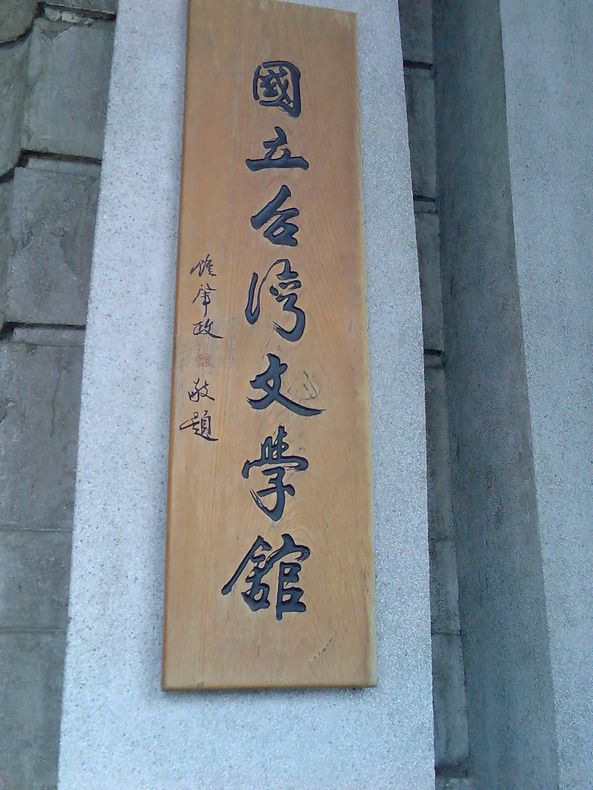 國立台灣文學舘
鍾肇政 敬題